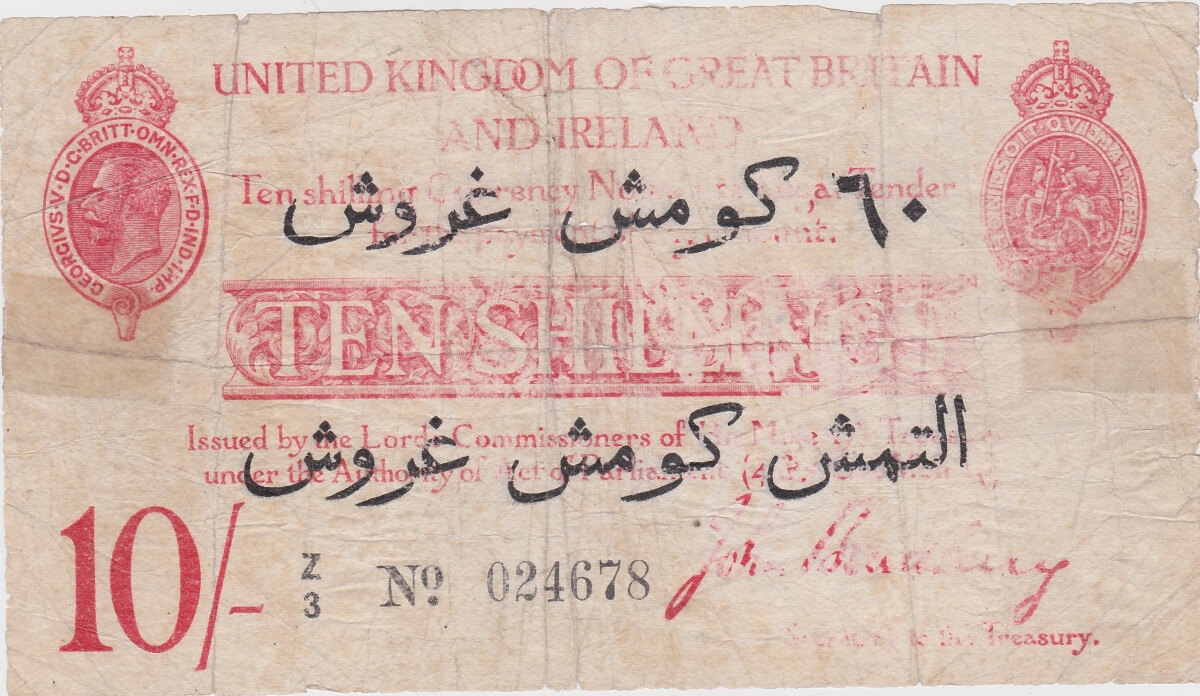 UNITED KINGDOM OF GREAT BRITAIN
AND IRELAND
GEORGIVS·V·D·G·BRITT·OMN·REX·F·D·IND·IMP·
SOIT·QVI·MAL·Y·PENSE
Ten shilling Currency Tender
٦٠ كومش غروش
for the payment
TEN SHILLINGS
Issued by the Lords Commissioners of
التمش كومش غروش
under the Authority of Act of Parliament
10/-
Z/3 Nº 024678
Secretary to the Treasury.